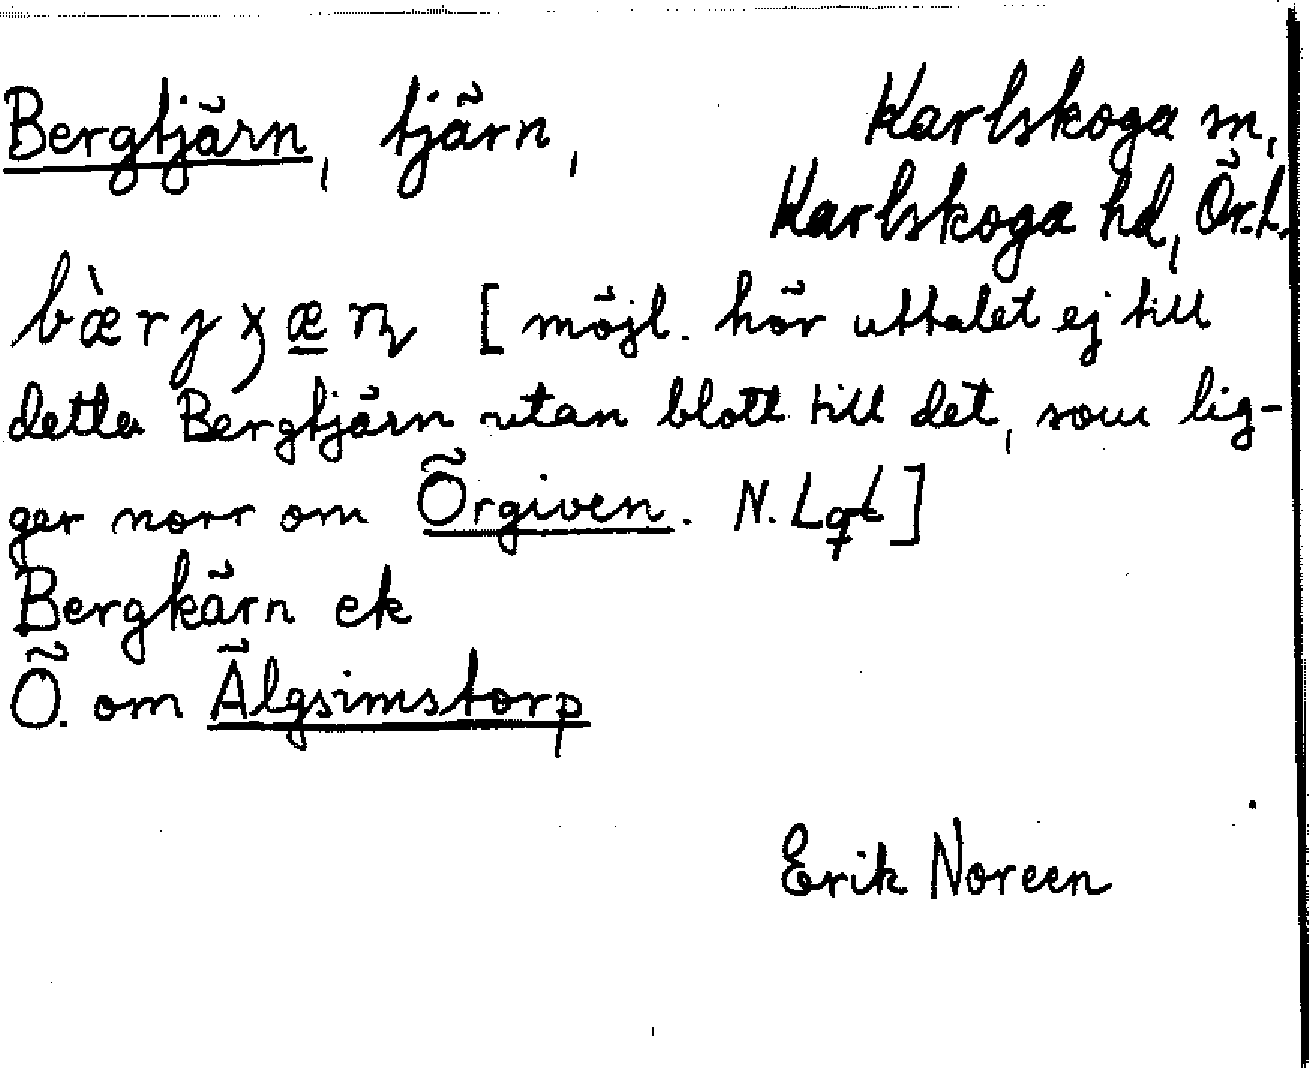 Bergtjärn, tjärn, Karlskoga sn,
Karlskoga hd, Ör. L.
bæ̀rjχæ̲rn [möjl. hör uttalet ej till
detta Bergtjärn utan blott till det, som lig-
ger norr om Örgiven. N. Lqt]
Bergkärn ek
Ö. om Älgsimstorp
Erik Noreen